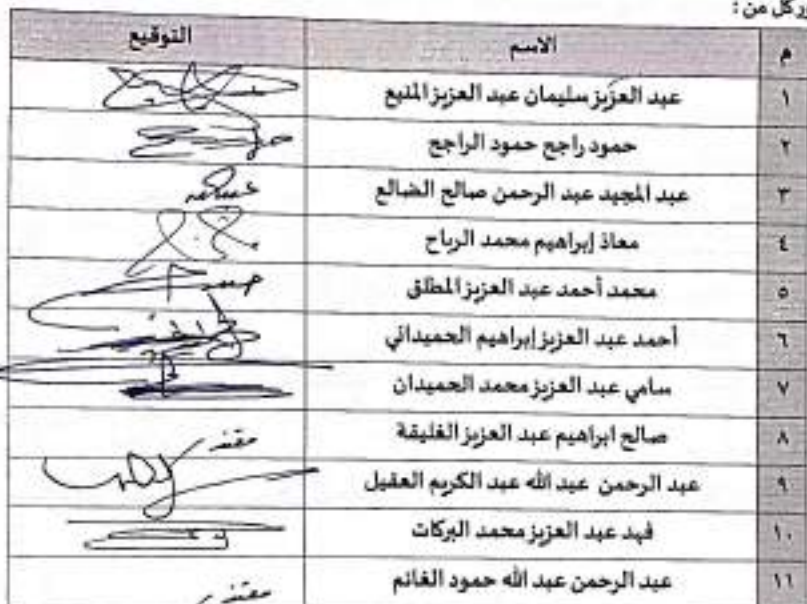 وركل من :
م الاسم التوقيع
١ عبد العزيز سليمان عبد العزيز المنيع
٢ حمود راجح حمود الراجح
٣ عبد المجيد عبد الرحمن صالح الضالع
٤ معاذ إبراهيم محمد الرباح
٥ محمد أحمد عبد العزيز المطلق
٦ أحمد عبد العزيز إبراهيم الحميداني
٧ سامي عبد العزيز محمد الحميدان
٨ صالح ابراهيم عبد العزيز الغليقة
٩ عبد الرحمن عبد الله عبد الكريم العقيل
١٠ فهد عبد العزيز محمد البركات
١١ عبد الرحمن عبد الله حمود الغانم